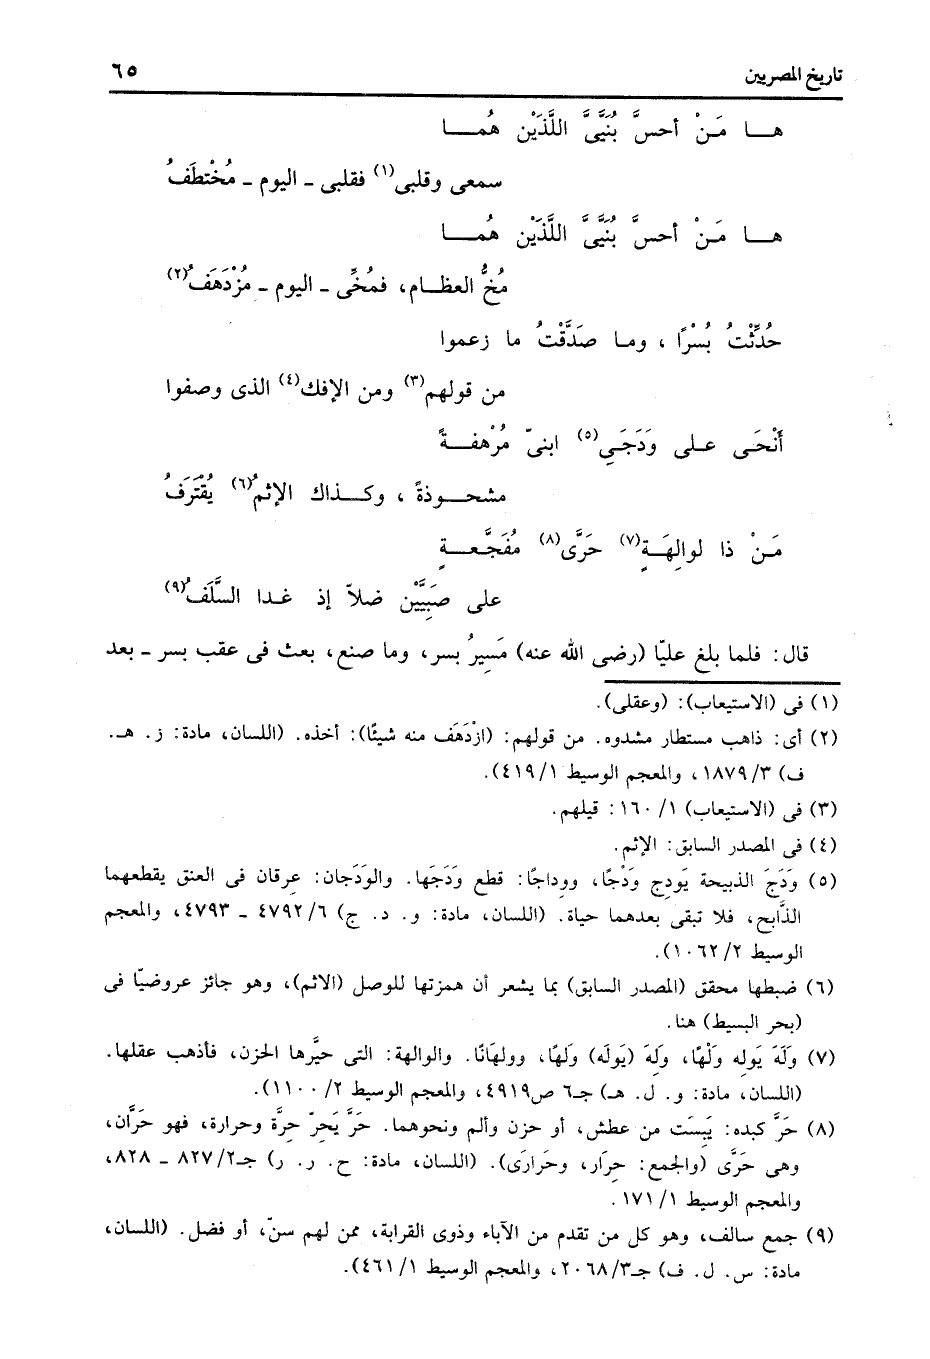 تاريخ المصريين ٦٥
هـــا مَـنْ أحسَّ بُنَيَّىَّ اللَّذَيْن هُمـــا
سمعى وقلبى(١) فقلبى ـ اليوم ـ مُخْتطَفُ
هـــا مَـنْ أحسَّ بُنَيَّىَّ اللَّذَيْن هُمـــا
مُخُّ العظــام، فمُخِّى ـ اليوم ـ مزْدَهَفُ(٢)
حُدِّثْتُ بُسْرًا ، ومـا صَدَّقْتُ ما زعموا
من قولهم(٣) ومن الإفك(٤) الذى وصفوا
أَنْحَـى علـى وَدَجَـيِ(٥) ابنىّ مُرْهفــةً
مشحـــوذةً ، وكــذاك الإثمُ(٦) يُقْتَرَفُ
مَـنْ ذا لوالِهَـةٍ(٧) حَرَّى(٨) مُفَجَّعــةٍ
على صَبِيَّيْن ضلاّ إذ غـدا السَّلَفُ(٩)
قال: فلما بلغ عليّا (رضى الله عنه) مَسِيرُ بسر، وما صنع، بعث فى عقب بسر ـ بعد
(١) فى (الاستيعاب): (وعقلى).
(٢) أى: ذاهب مستطار مشدوه. من قولهم: (ازْدَهَف منه شيئًا): أخذه. (اللسان، مادة: ز. هـ.
ف) ٣/ ١٨٧٩، والمعجم الوسيط ١/ ٤١٩).
(٣) فى (الاستيعاب) ١/ ١٦٠: قيلهم.
(٤) فى المصدر السابق: الإثم.
(٥) وَدَجَ الذبيحة يَودِج وَدْجًا، ووداجًا: قطع وَدَجَها. والوَدَجان: عِرقان فى العنق يقطعهما
الذَّابح، فلا تبقى بعدهما حياة. (اللسان، مادة: و. د. ج) ٦/ ٤٧٩٢ ـ ٤٧٩٣، والمعجم
الوسيط ٢/ ١٠٦٢).
(٦) ضبطها محقق (المصدر السابق) بما يشعر أن همزتها للوصل (الاثم)، وهو جائز عروضيّا فى
(بحر البسيط) هنا.
(٧) وَلَهَ يَولِه وَلْهًا، وَلِهَ (يَولَه) وَلَهًا، وولَهَانًا. والوالهة: التى حيَّرها الحزن، فأذهب عقلها.
(اللسان، مادة: و. ل. هـ) جـ٦ ص٤٩١٩، والمعجم الوسيط ٢/ ١١٠٠).
(٨) حَرَّ كبده: يَبِسَت من عطش، أو حزن وألم ونحوهما. حَرَّ يَحِرّ حِرَّة وحرارة، فهو حَرَّان،
وهى حَرَّى (والجمع: حِرَار، وحَرَارَى). (اللسان، مادة: ح. ر. ر) جـ٢/ ٨٢٧ ـ ٨٢٨،
والمعجم الوسيط ١/ ١٧١.
(٩) جمع سالف، وهو كل من تقدم من الآباء وذوى القرابة، ممن لهم سنّ، أو فضل. (اللسان،
مادة: س. ل. ف) جـ٣/ ٢٠٦٨، والمعجم الوسيط ١/ ٤٦١).